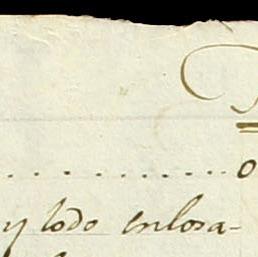 ............o
y lodo enlosa-